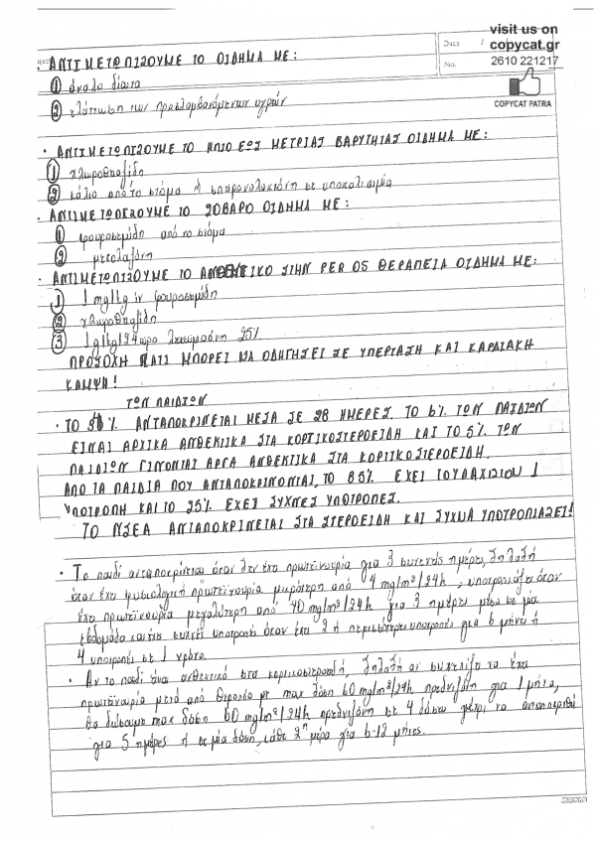 visit us on
copycat.gr
2610 221217
COPYCAT PATRA
No.
· ΑΝΤΙΜΕΤΩΠΙΖΟΥΜΕ ΤΟ ΟΙΔΗΜΑ ΜΕ:
① άναλο δίαιτα
② ελάττωση των προσλαμβανόμενων υγρών
· ΑΝΤΙΜΕΤΩΠΙΖΟΥΜΕ ΤΟ ΗΠΙΟ ΕΩΣ ΜΕΤΡΙΑΣ ΒΑΡΥΤΗΤΑΣ ΟΙΔΗΜΑ ΜΕ:
① χλωροθιαζίδη
② κάλιο από το στόμα ή σπιρονολακτόνη σε υποκαλιαιμία
· ΑΝΤΙΜΕΤΩΠΙΖΟΥΜΕ ΤΟ ΣΟΒΑΡΟ ΟΙΔΗΜΑ ΜΕ:
① φουροσεμίδη από το στόμα
② μετολαζόνη
· ΑΝΤΙΜΕΤΩΠΙΖΟΥΜΕ ΤΟ ΑΝΘΕΚΤΙΚΟ ΣΤΗΝ PER OS ΘΕΡΑΠΕΙΑ ΟΙΔΗΜΑ ΜΕ:
① 1 mg/kg iv φουροσεμίδη
② χλωροθιαζίδη
③ 1g/kg/24ωρο λευκωματίνη 25%
ΠΡΟΣΟΧΗ ΓΙΑΤΙ ΜΠΟΡΕΙ ΝΑ ΟΔΗΓΗΣΕΙ ΣΕ ΥΠΕΡΤΑΣΗ ΚΑΙ ΚΑΡΔΙΑΚΗ
ΚΑΜΨΗ!
ΤΩΝ ΠΑΙΔΙΩΝ
· ΤΟ % ΑΝΤΑΠΟΚΡΙΝΕΤΑΙ ΜΕΣΑ ΣΕ 28 ΗΜΕΡΕΣ. ΤΟ 6% ΤΩΝ ΠΑΙΔΙΩΝ
ΕΙΝΑΙ ΑΡΧΙΚΑ ΑΝΘΕΚΤΙΚΑ ΣΤΑ ΚΟΡΤΙΚΟΣΤΕΡΟΕΙΔΗ ΚΑΙ ΤΟ 5% ΤΩΝ
ΠΑΙΔΙΩΝ ΓΙΝΟΝΤΑΙ ΑΡΓΑ ΑΝΘΕΚΤΙΚΑ ΣΤΑ ΚΟΡΤΙΚΟΣΤΕΡΟΕΙΔΗ.
ΑΠΟ ΤΑ ΠΑΙΔΙΑ ΠΟΥ ΑΝΤΑΠΟΚΡΙΝΟΝΤΑΙ, ΤΟ 85% ΕΧΕΙ ΤΟΥΛΑΧΙΣΤΟΝ 1
ΥΠΟΤΡΟΠΗ ΚΑΙ ΤΟ 25% ΕΧΕΙ ΣΥΧΝΕΣ ΥΠΟΤΡΟΠΕΣ.
ΤΟ ΝΣΕΑ ΑΝΤΑΠΟΚΡΙΝΕΤΑΙ ΣΤΑ ΣΤΕΡΟΕΙΔΗ ΚΑΙ ΣΥΧΝΑ ΥΠΟΤΡΟΠΙΑΖΕΙ!
· Το παιδί ανταποκρίνεται όταν δεν έχει πρωτεϊνουρία για 3 συνεχείς ημέρες, δηλαδή
όταν έχει φυσιολογική πρωτεϊνουρία μικρότερη από 4 mg/m²/24h, υποτροπιάζει όταν
έχει πρωτεϊνουρία μεγαλύτερη από 40 mg/m²/24h για 3 ημέρες μέσα σε μία
εβδομάδα και έχει συχνές υποτροπές όταν έχει 2 ή περισσότερες υποτροπές για 6 μήνες ή
4 υποτροπές σε 1 χρόνο.
· Αν το παιδί είναι ανθεκτικό στα κορτικοστεροειδή, δηλαδή αν συνεχίζει να έχει
πρωτεϊνουρία μετά από θεραπεία με max δόση 60 mg/m²/24h πρεδνιζόνη για 1 μήνα,
θα δώσουμε max δόση 60 mg/m²/24h πρεδνιζόνη σε 4 δόσεις μέχρι να ανταποκριθεί
για 5 ημέρες ή σε μία δόση, κάθε 2η μέρα για 6-12 μήνες.